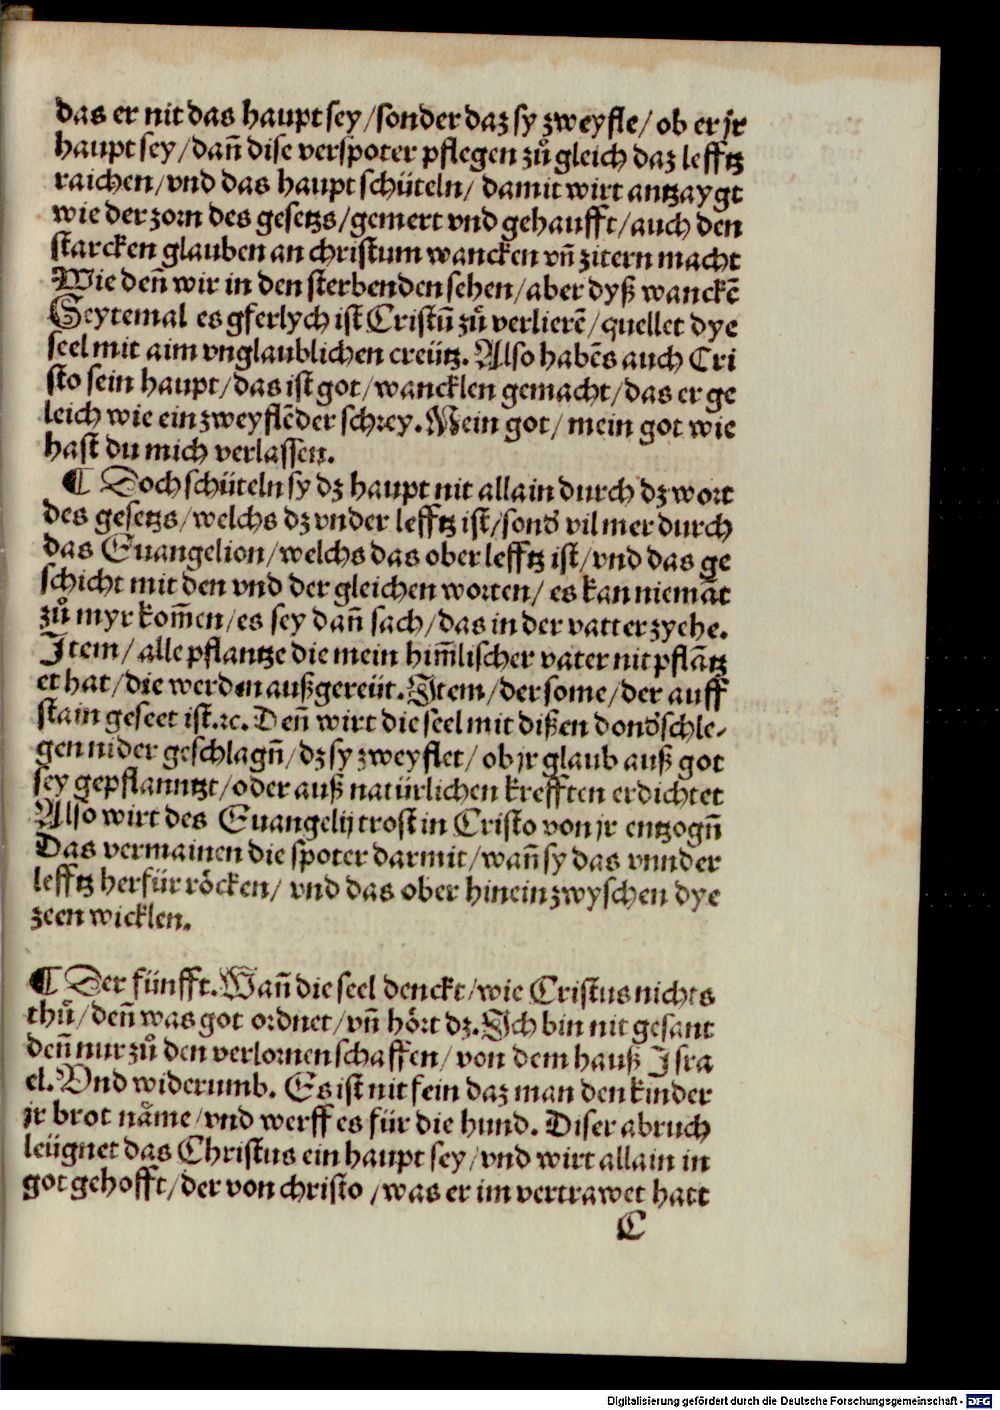 das er nit das haupt sey/sonder daz sy zweyfle/ ob er jr
haupt sey/dañ dise verspoter pflegen zů gleich daz lefftz
raichen/vnd das haupt schüteln/ damit wirt antzaygt
wie der zorn des gesetzs/gemert vnd gehaufft/auch den
starcken glauben an christum wancken vñ zitern macht
Wie deñ wir in den sterbenden sehen/aber dyß wanckē
Seytemal es gferlych ist Cristū zů verlierē/quellet dye
seel mit aim vnglaublichen creütz. Also habēs auch Cri
sto sein haupt/das ist got/wancklen gemacht/das er ge
leich wie ein zweyflēder schrey. Mein got/ mein got wie
hast du mich verlassen.
¶ Doch schüteln sy dz haupt nit allain durch dz wort
des gesetzs/welchs dz vnder lefftz ist/sond' vil mer durch
das Euangelion/welchs das ober lefftz ist/vnd das ge
schicht mit den vnd der gleichen worten/ es kan niemāt
zů myr kom̄en/es sey dañ sach/das in der vatter zyehe.
Item/ alle pflantze die mein him̄lischer vater nit pflātz
et hat/die werden außgereüt. Item/der some/der auff
stain geseet ist.ꝛc. Deñ wirt die seel mit dißen dond'schle-
gen nider geschlagñ/dz sy zweyflet/ob jr glaub auß got
sey gepflanntzt/oder auß natürlichen krefften erdichtet
Also wirt des Euangelij trost in Cristo von jr entzogñ
Das vermainen die spoter darmit/wañ sy das vnnder
lefftz herfür röcken/ vnd das ober hinein zwyschen dye
zeen wicklen.
¶ Der fünfft. Wañ die seel denckt/wie Cristus nichts
thů/deñ was got ordnet/vñ hört dz. Ich bin nit gesant
deñ nur zů den verlornen schaffen/von dem hauß Isra
el. Vnd widerumb. Es ist nit fein daz man den kinder
jr brot näme/vnd werff es für die hund. Diser abruch
leügnet das Christus ein haupt sey/vnd wirt allain in
got gehofft/der von christo /was er im vertrawet hatt
C
Digitalisierung gefördert durch die Deutsche Forschungsgemeinschaft - DFG